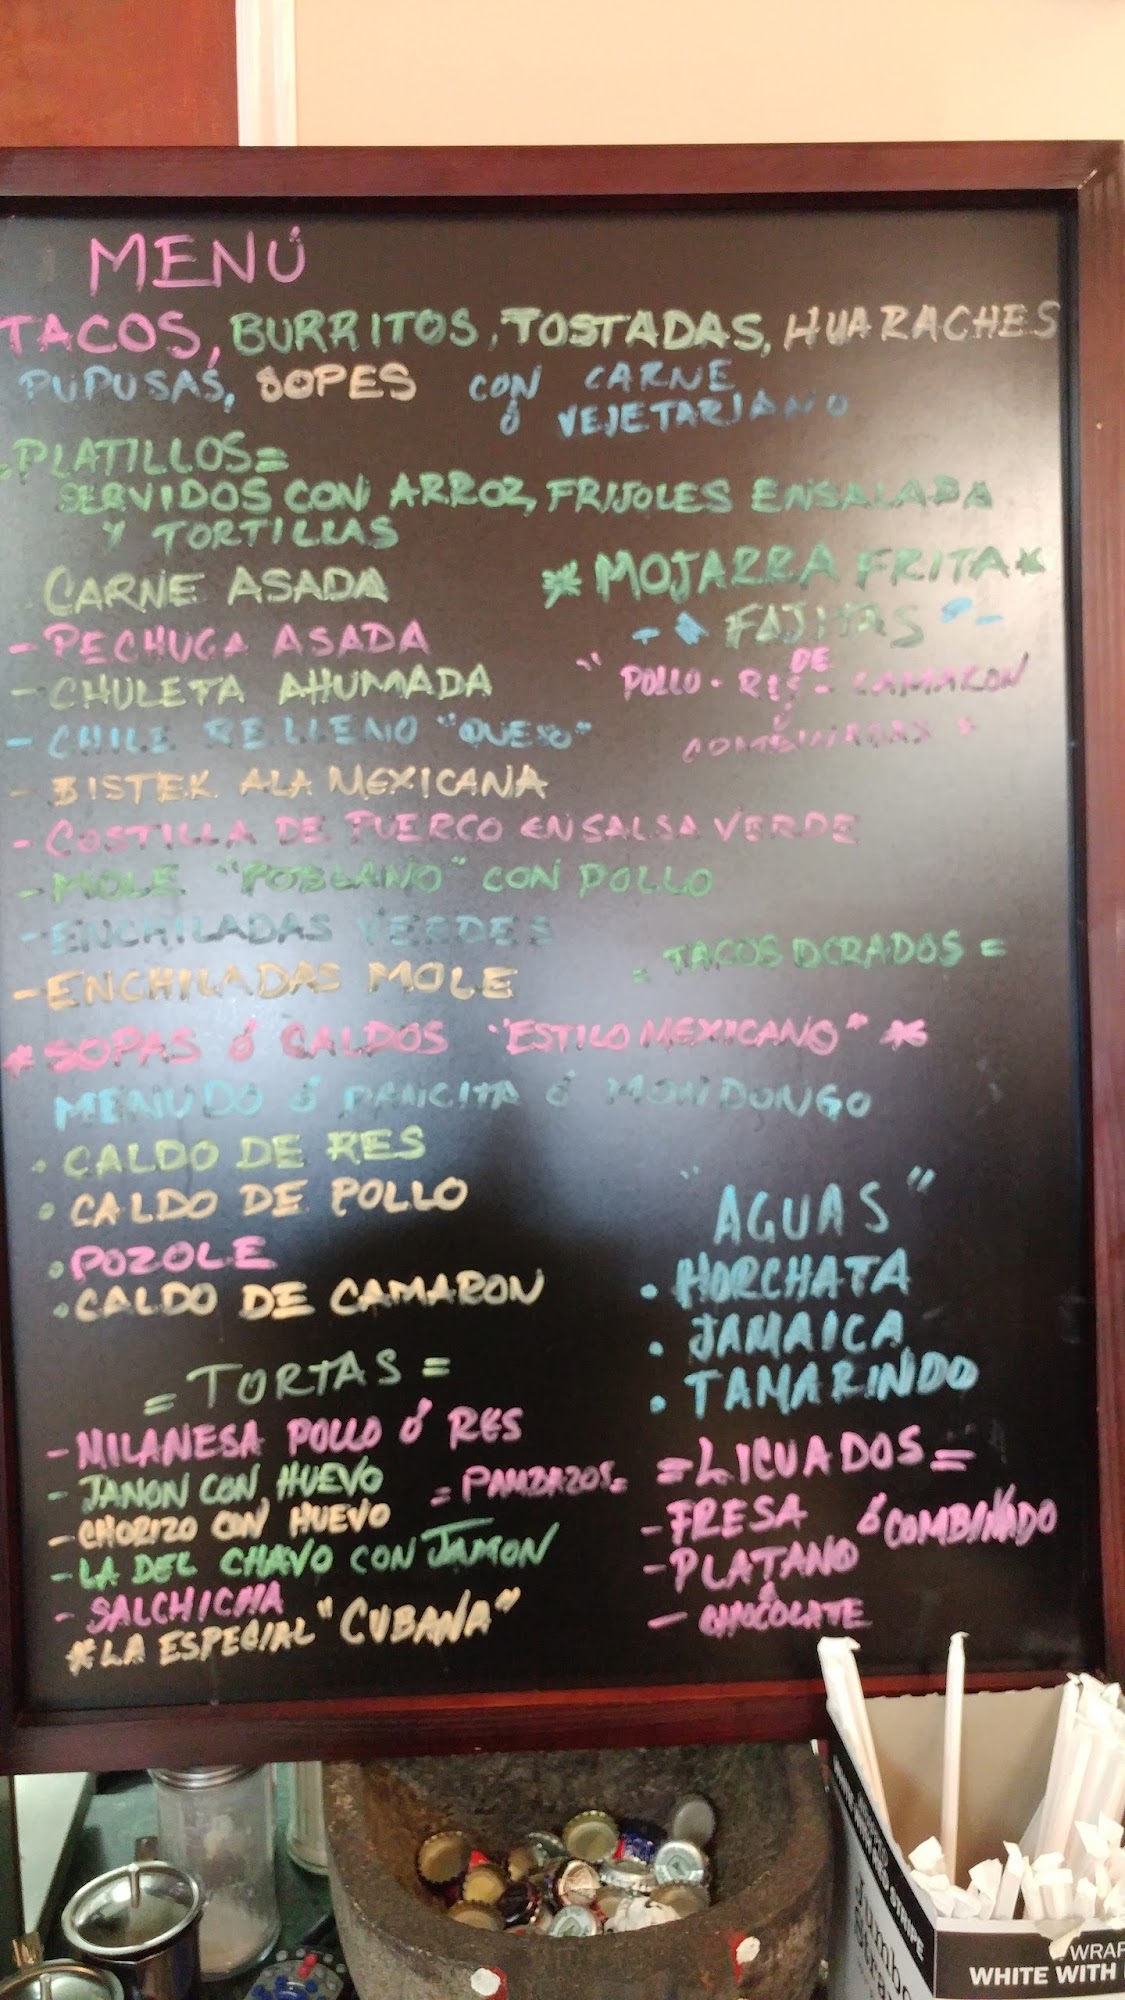 MENÚ
TACOS, BURRITOS, TOSTADAS, HUARACHES
PUPUSAS, SOPES CON CARNE
Ó VEJETARIANO
PLATILLOS=
SERVIDOS CON ARROZ, FRIJOLES ENSALADA
Y TORTILLAS
CARNE ASADA
- PECHUGA ASADA
- CHULETA AHUMADA
- CHILE RELLENO "QUESO"
- BISTEK ALA MEXICANA
- COSTILLA DE PUERCO EN SALSA VERDE
- MOLE "POBLANO" CON POLLO
- ENCHILADAS VERDES
- ENCHILADAS MOLE
* MOJARRA FRITA *
FAJITAS
DE
" POLLO - RES - CAMARON
Ó
COMBINADAS "
= TACOS DORADOS =
* SOPAS Ó CALDOS "ESTILO MEXICANO" *
MENUDO Ó PANCITA Ó MONDONGO
• CALDO DE RES
• CALDO DE POLLO
• POZOLE
• CALDO DE CAMARON
"AGUAS"
• HORCHATA
• JAMAICA
• TAMARINDO
= TORTAS =
- MILANESA POLLO Ó RES
- JAMON CON HUEVO
- CHORIZO CON HUEVO
- LA DEL CHAVO CON JAMON
- SALCHICHA
* LA ESPECIAL "CUBANA"
= PAMBAZOS =
= LICUADOS =
- FRESA Ó COMBINADO
- PLATANO
Ó
- CHOCOLATE
Jumbo
WRAP
WHITE WITH